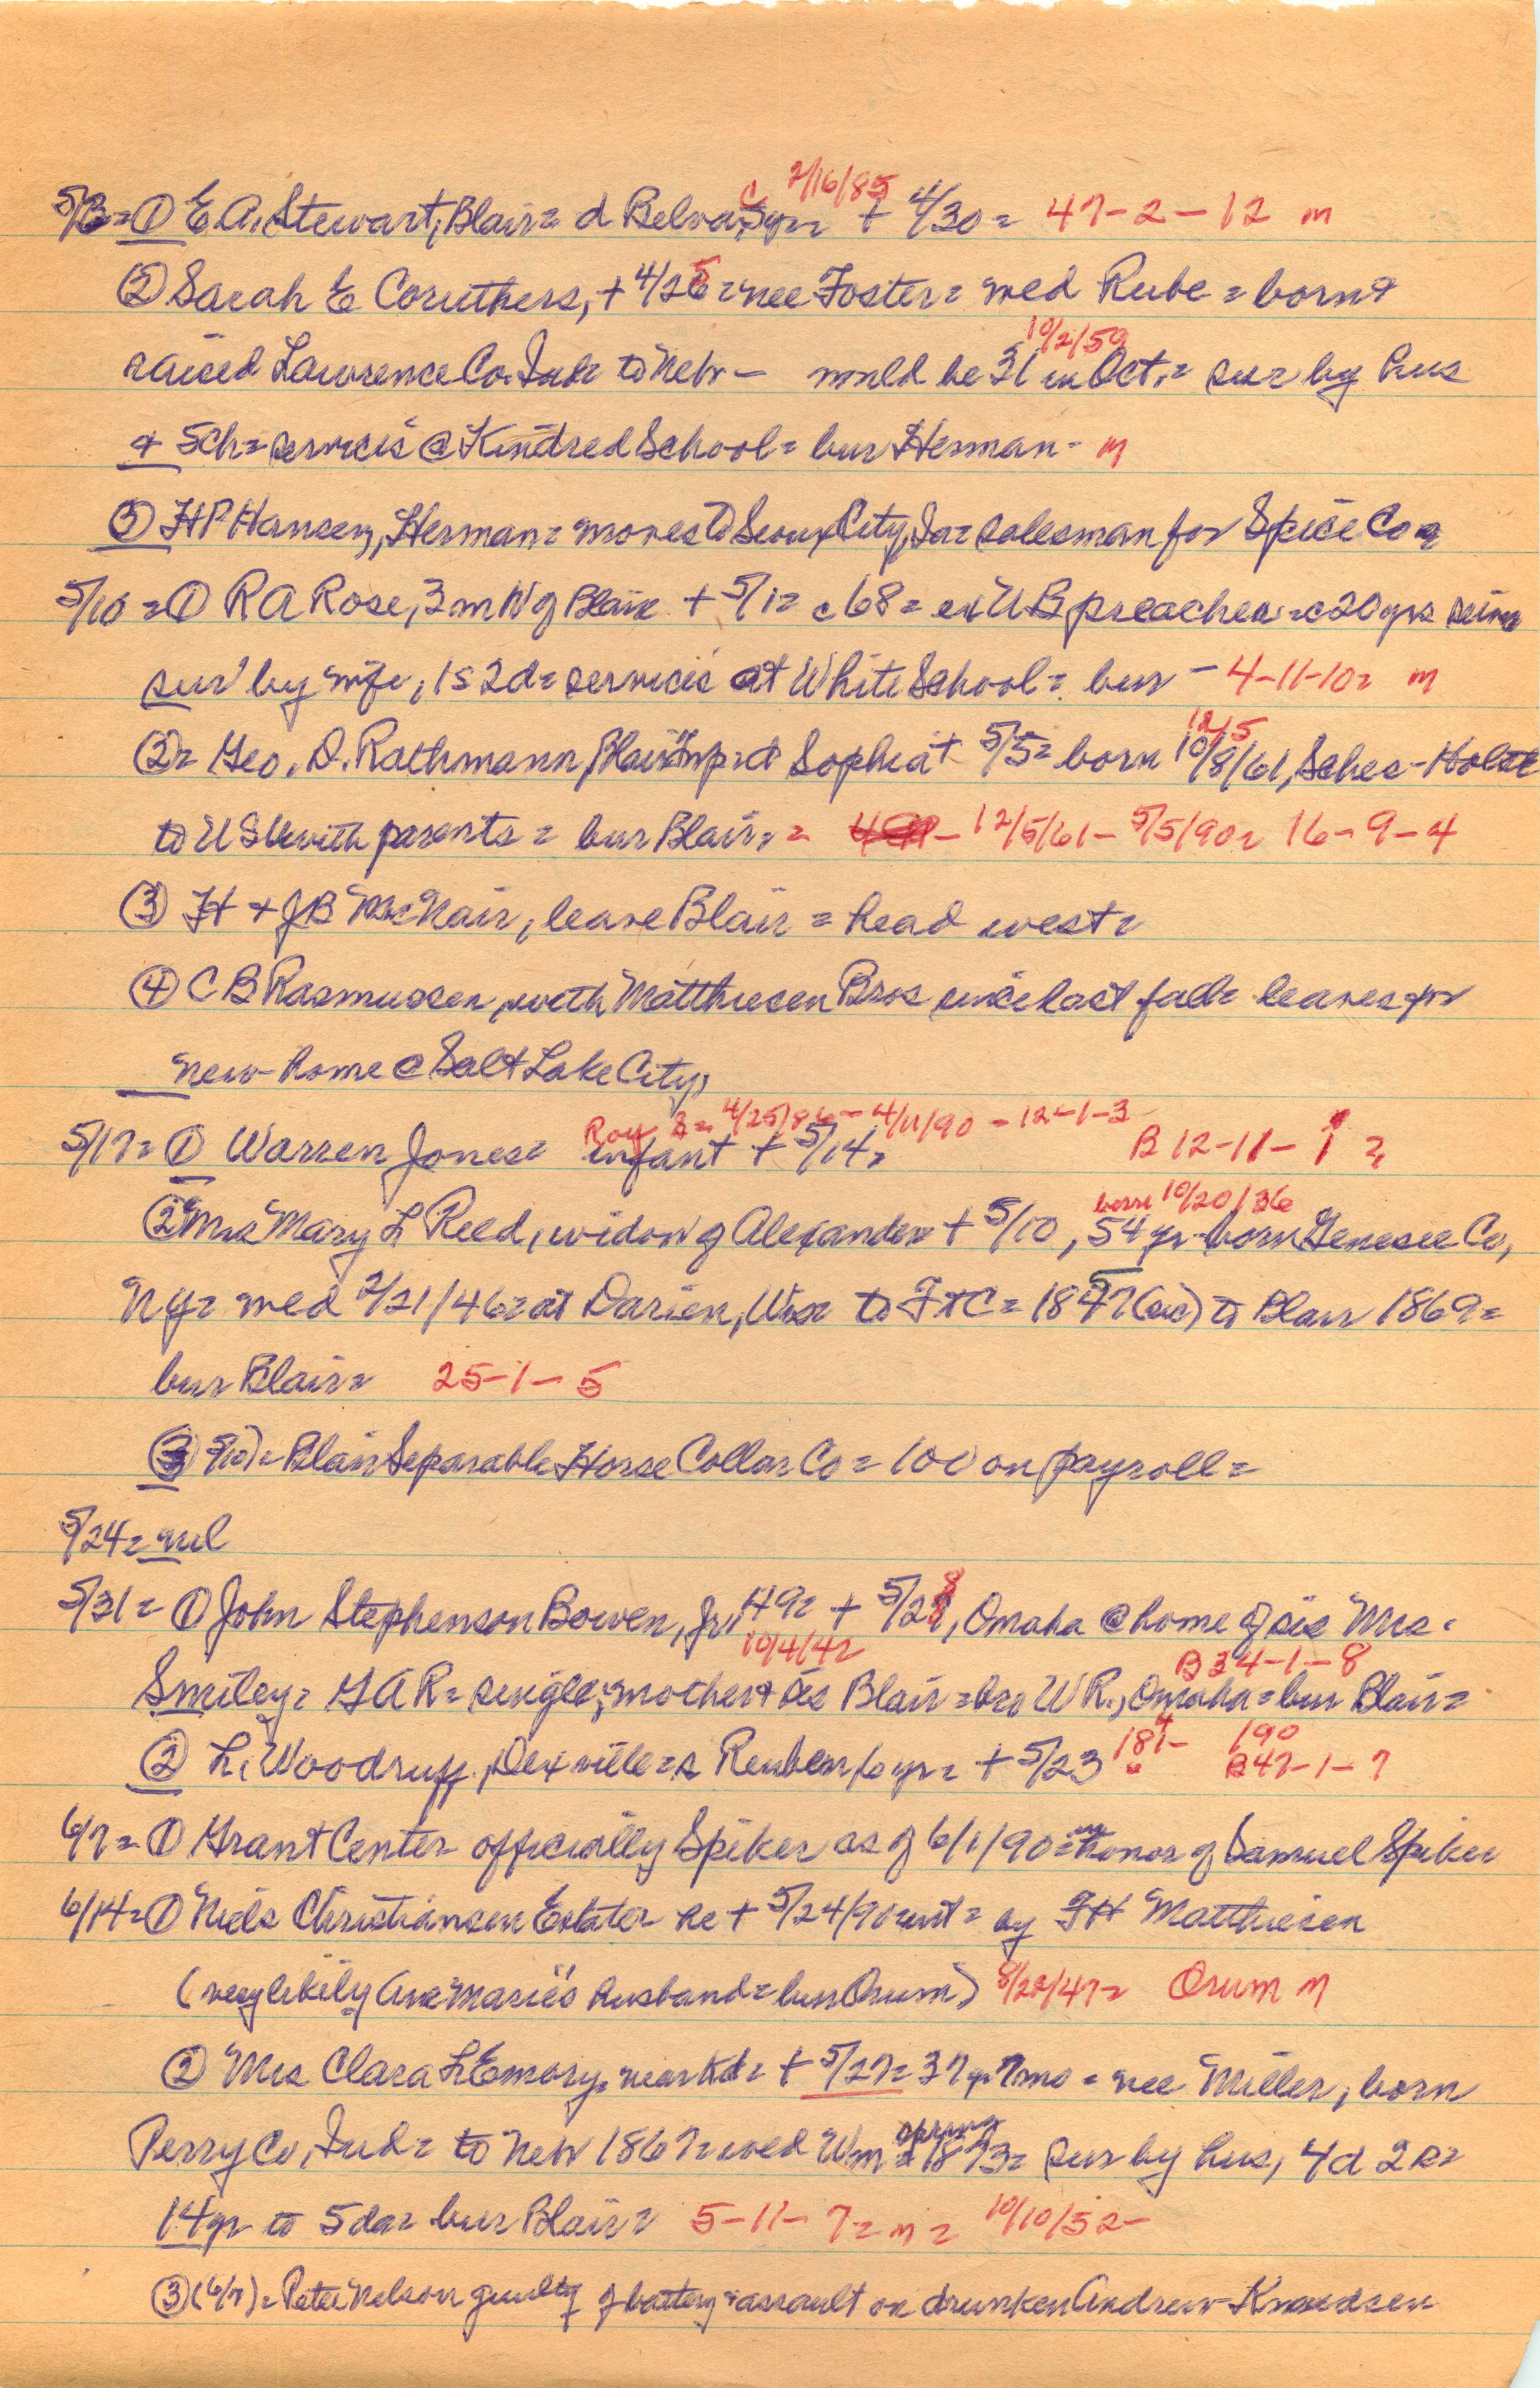 2/16/85
5/3 = ① E.A. Stewart, Blair = d Belva C, 5yr = + 4/30 = 47-2-12 m
② Sarah E Coruthers, + 4/25 = nee Foster = wed Rube = born &
10/2/59
raised Lawrence Co. Ind = to Neb - would be 31 in Oct. = sur by hus
& 5ch = services @ Kindred School = bur Herman - m
③ HP Hansen, Herman = moves to Sioux City, Ia = salesman for Spice Co =
5/10 = ① R A Rose, 3m W of Blair + 5/1 = c68 = ex U B preacher = c20 yrs
sur by wife, 1s 2d = services at White School = bur - 4-11-10 = m
12/5
② = Geo. D. Rathmann, Blair Twp = d Sophia + 5/5 = born 10/8/61, Schles-Holst
to US with parents = bur Blair = = 12/5/61 - 5/5/90 = 16-9-4
③ H + JB McNair, leave Blair = head west =
④ C B Rasmussen, with Matthiesen Bros since last fall = leaves for
new home @ Salt Lake City,
Roy 4/25/86 - 4/11/90 - 12-1-3
5/17 = ① Warren Jones = infant + 5/14 = B 12-11-1 =
born 10/20/36
② Mrs Mary L Reed, widow of Alexander + 5/10, 54 yr = born Genesee Co,
NY = wed 2/21/46 = at Darien, Wis = to FtC = 1857 (sic) to Blair 1869 =
bur Blair = 25-1-5
③ = Blair Separable Horse Collar Co = 100 on payroll =
5/24 = nil
5/31 = ① John Stephenson Bowen, Jr, 49 = + 5/28, Omaha @ home of sis Mrs.
10/4/42 B 34-1-8
Smiley = GAR = single; mother & sis Blair = bro W R., Omaha = bur Blair =
184- 190
② L. Woodruff, Dexville = s Reuben 6 yr = + 5/23 B 47-1-7
6/7 = ① Grant Center officially Spiker as of 6/1/90 = in honor of Samuel Spiker
6/14 = ① Niels Christiansen Estate = he + 5/24/90 = int = by FH Matthiesen
(very likely Ane Marie's husband = bur Orum) 8/20/47 = Orum m
② Mrs Clara L Emory, near Kd = + 5/27 = 37 yr 7mo = nee Miller, born
spring
Perry Co, Ind = to Neb 1867 = wed Wm = 1873 = sur by hus, 4d 2s =
14yr to 5 da = bur Blair = 5-11-7 = m = 10/10/52 -
③ (6/7) = Peter Nelson guilty of battery & assault on drunken Andrew Knudsen